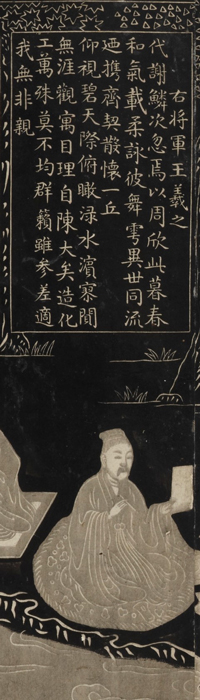 右将軍王羲之
代謝鱗次忽焉以周欣此暮春
和氣載柔詠彼舞雩異世同流
迺携齊契散懷一丘
仰視碧天際俯瞰渌水濵寥閴
無涯觀寓目理自陳大矣造化
工萬殊莫不均群籟雖參差適
我無非親